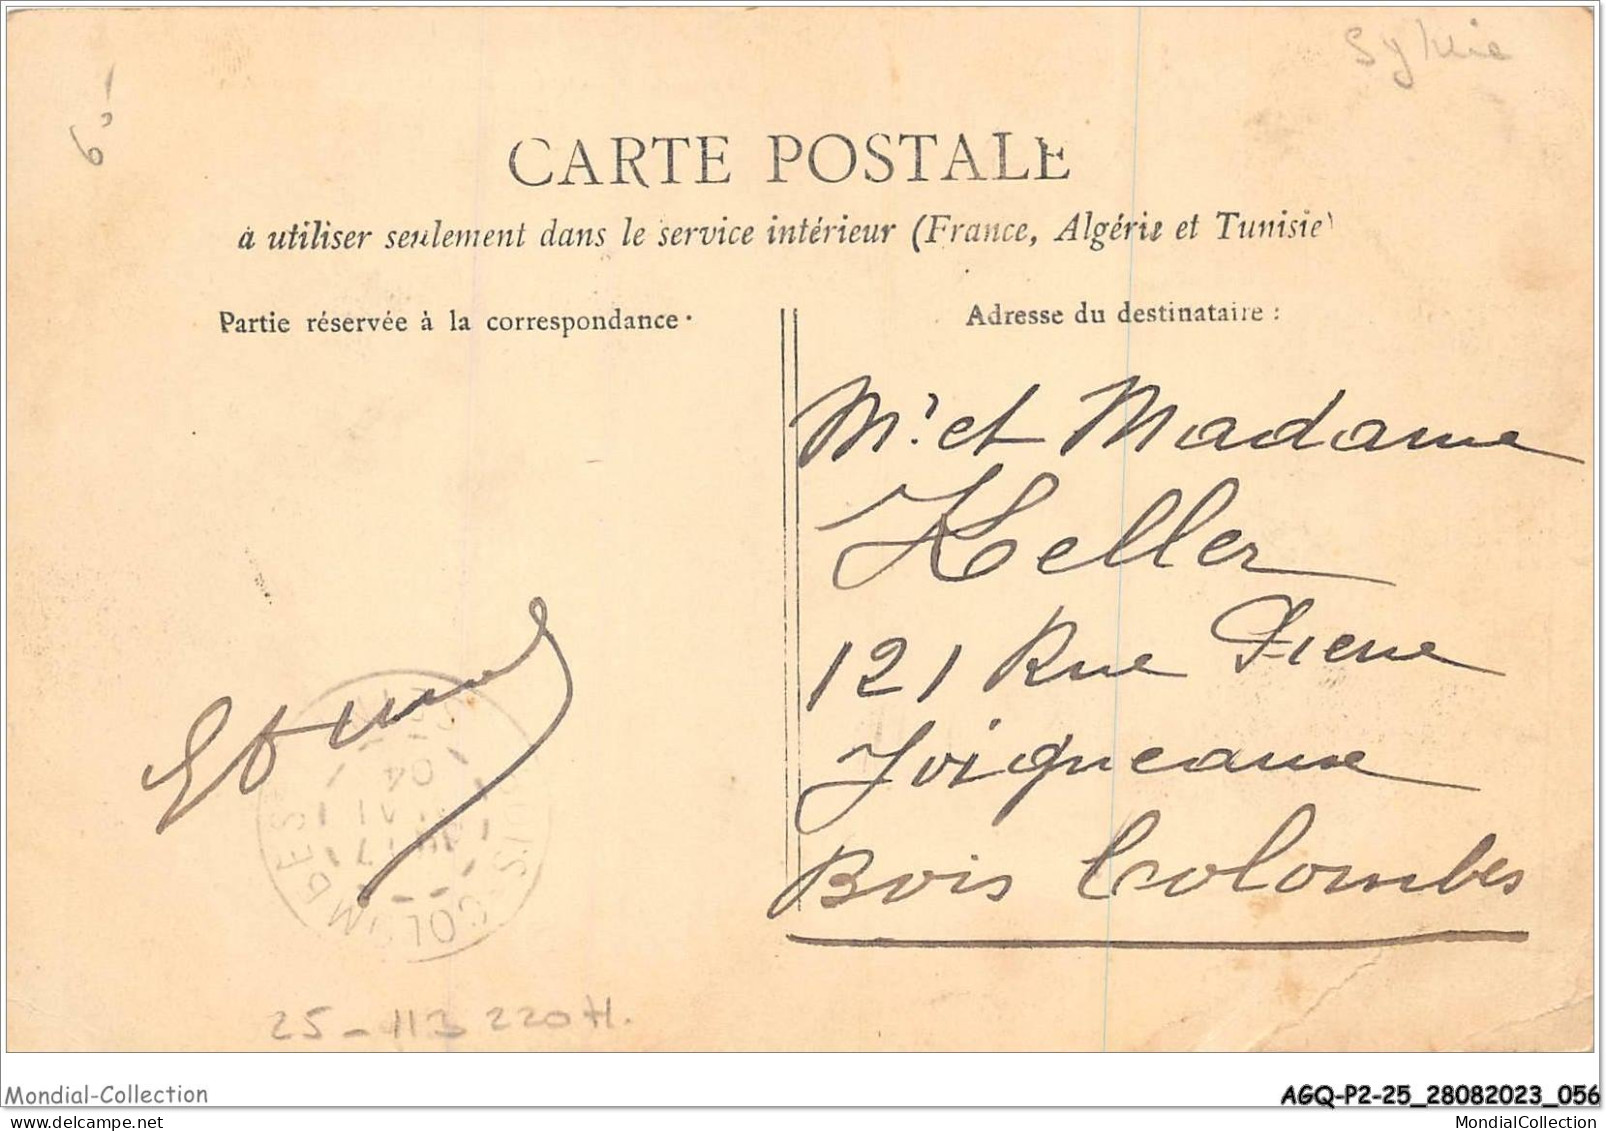 Sylvie
6
CARTE POSTALE
à utiliser seulement dans le service intérieur (France, Algérie et Tunisie)
Partie réservée à la correspondance.
Adresse du destinataire :
Mr. et Madame
Keller
121 Rue Pierre
Joigneaux
Bois Colombes
BOIS-COLOMBES
04
25-113 220 H.
Mondial-Collection
AGQ-P2-25_28082023_056
MondialCollection
MondialCollection